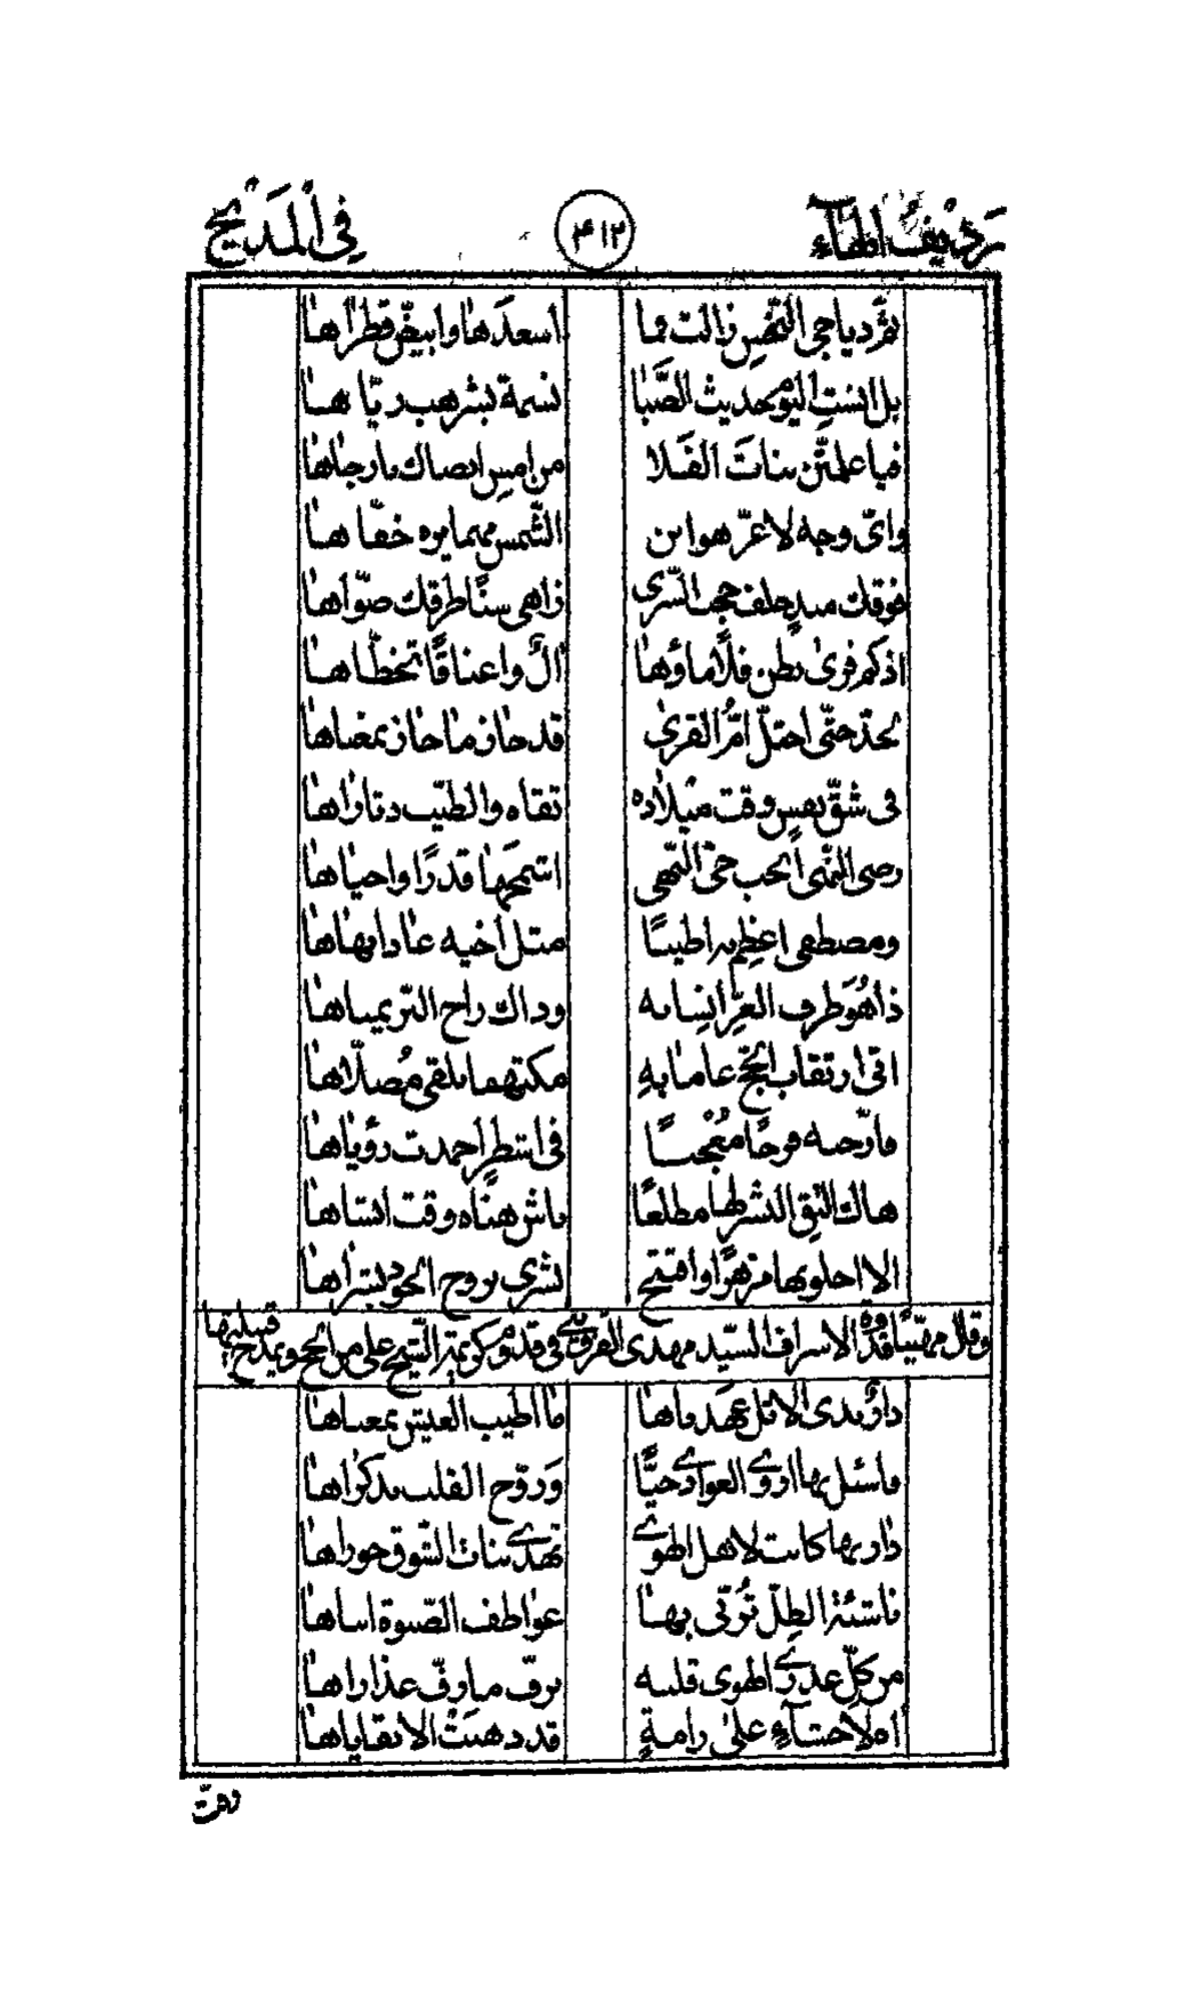 رديف الهاء ٤١٢ في المديح
ثم دياجي النحس زالت فما اسعدها وابيض قطراها
بل انست اليوم حديث الصبا نسمة بشر هب رياها
فيا علمتن بنات الفلا من امس ايصاك بارجاها
واى وجه لاغر هو ابن الشمس مهما يره خفاها
فوقك مبد خلف حجب السرى زاهي سنا طرقك ضواها
اذ كم فرى بطن فلا ماؤها ال واعناقا تخطاها
بحد حتى احتل ام القرى قد حاز ما حاز بمغناها
في شق نفس وقت ميلاده تقاه والطيب دثاراها
رضى النهى احب حتى النهى اسمحها قدرا واحياها
ومصطفى اعظم به اطيبا مثل اخيه عاد ابهاها
ذا هو طرف العز انسانه وذاك راح البر يمناها
افى ارتقاب الحج عاما به مكتهما يلقى مصلاها
ما ارخه فرحا معجبا في اسطر احمدت رؤياها
هاك النق النشر لها مطلعا باش هناه وقت انشاها
الا احلولها مزهرا وافتتح بشرى بروح الجود بشراها
وقال مهنيا قدوة الاشراف السيد مهدى القزويني في قدوم كريمته الشيخ على من الحج ويمدح قبيلتها
دار بذى الاثل عهدناها ما اطيب العيش بمغناها
فاسئل بها اروى العوادي حيا وروح القلب بذكراها
دار بها كانت لاهل الهوى تهدى بنات الشوق حوراها
ناشئة الطل تربى بها عواطف الصبوة انشاها
من كل عذري الهوى قلبه يرق ما رق عذاراها
اه لاحشاء على رامة قد ذهبت الا بقاياها
رفت